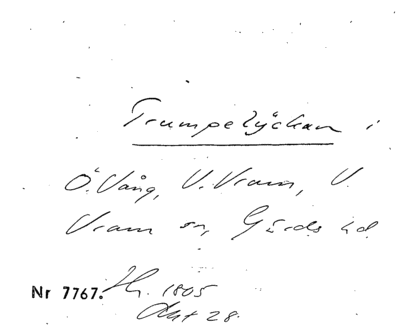 Trumpelyckan i
Ö. Vång, V. Vram, V.
Vram sn, Gärds hd.
Nr 7767. 1805
Akt 28.